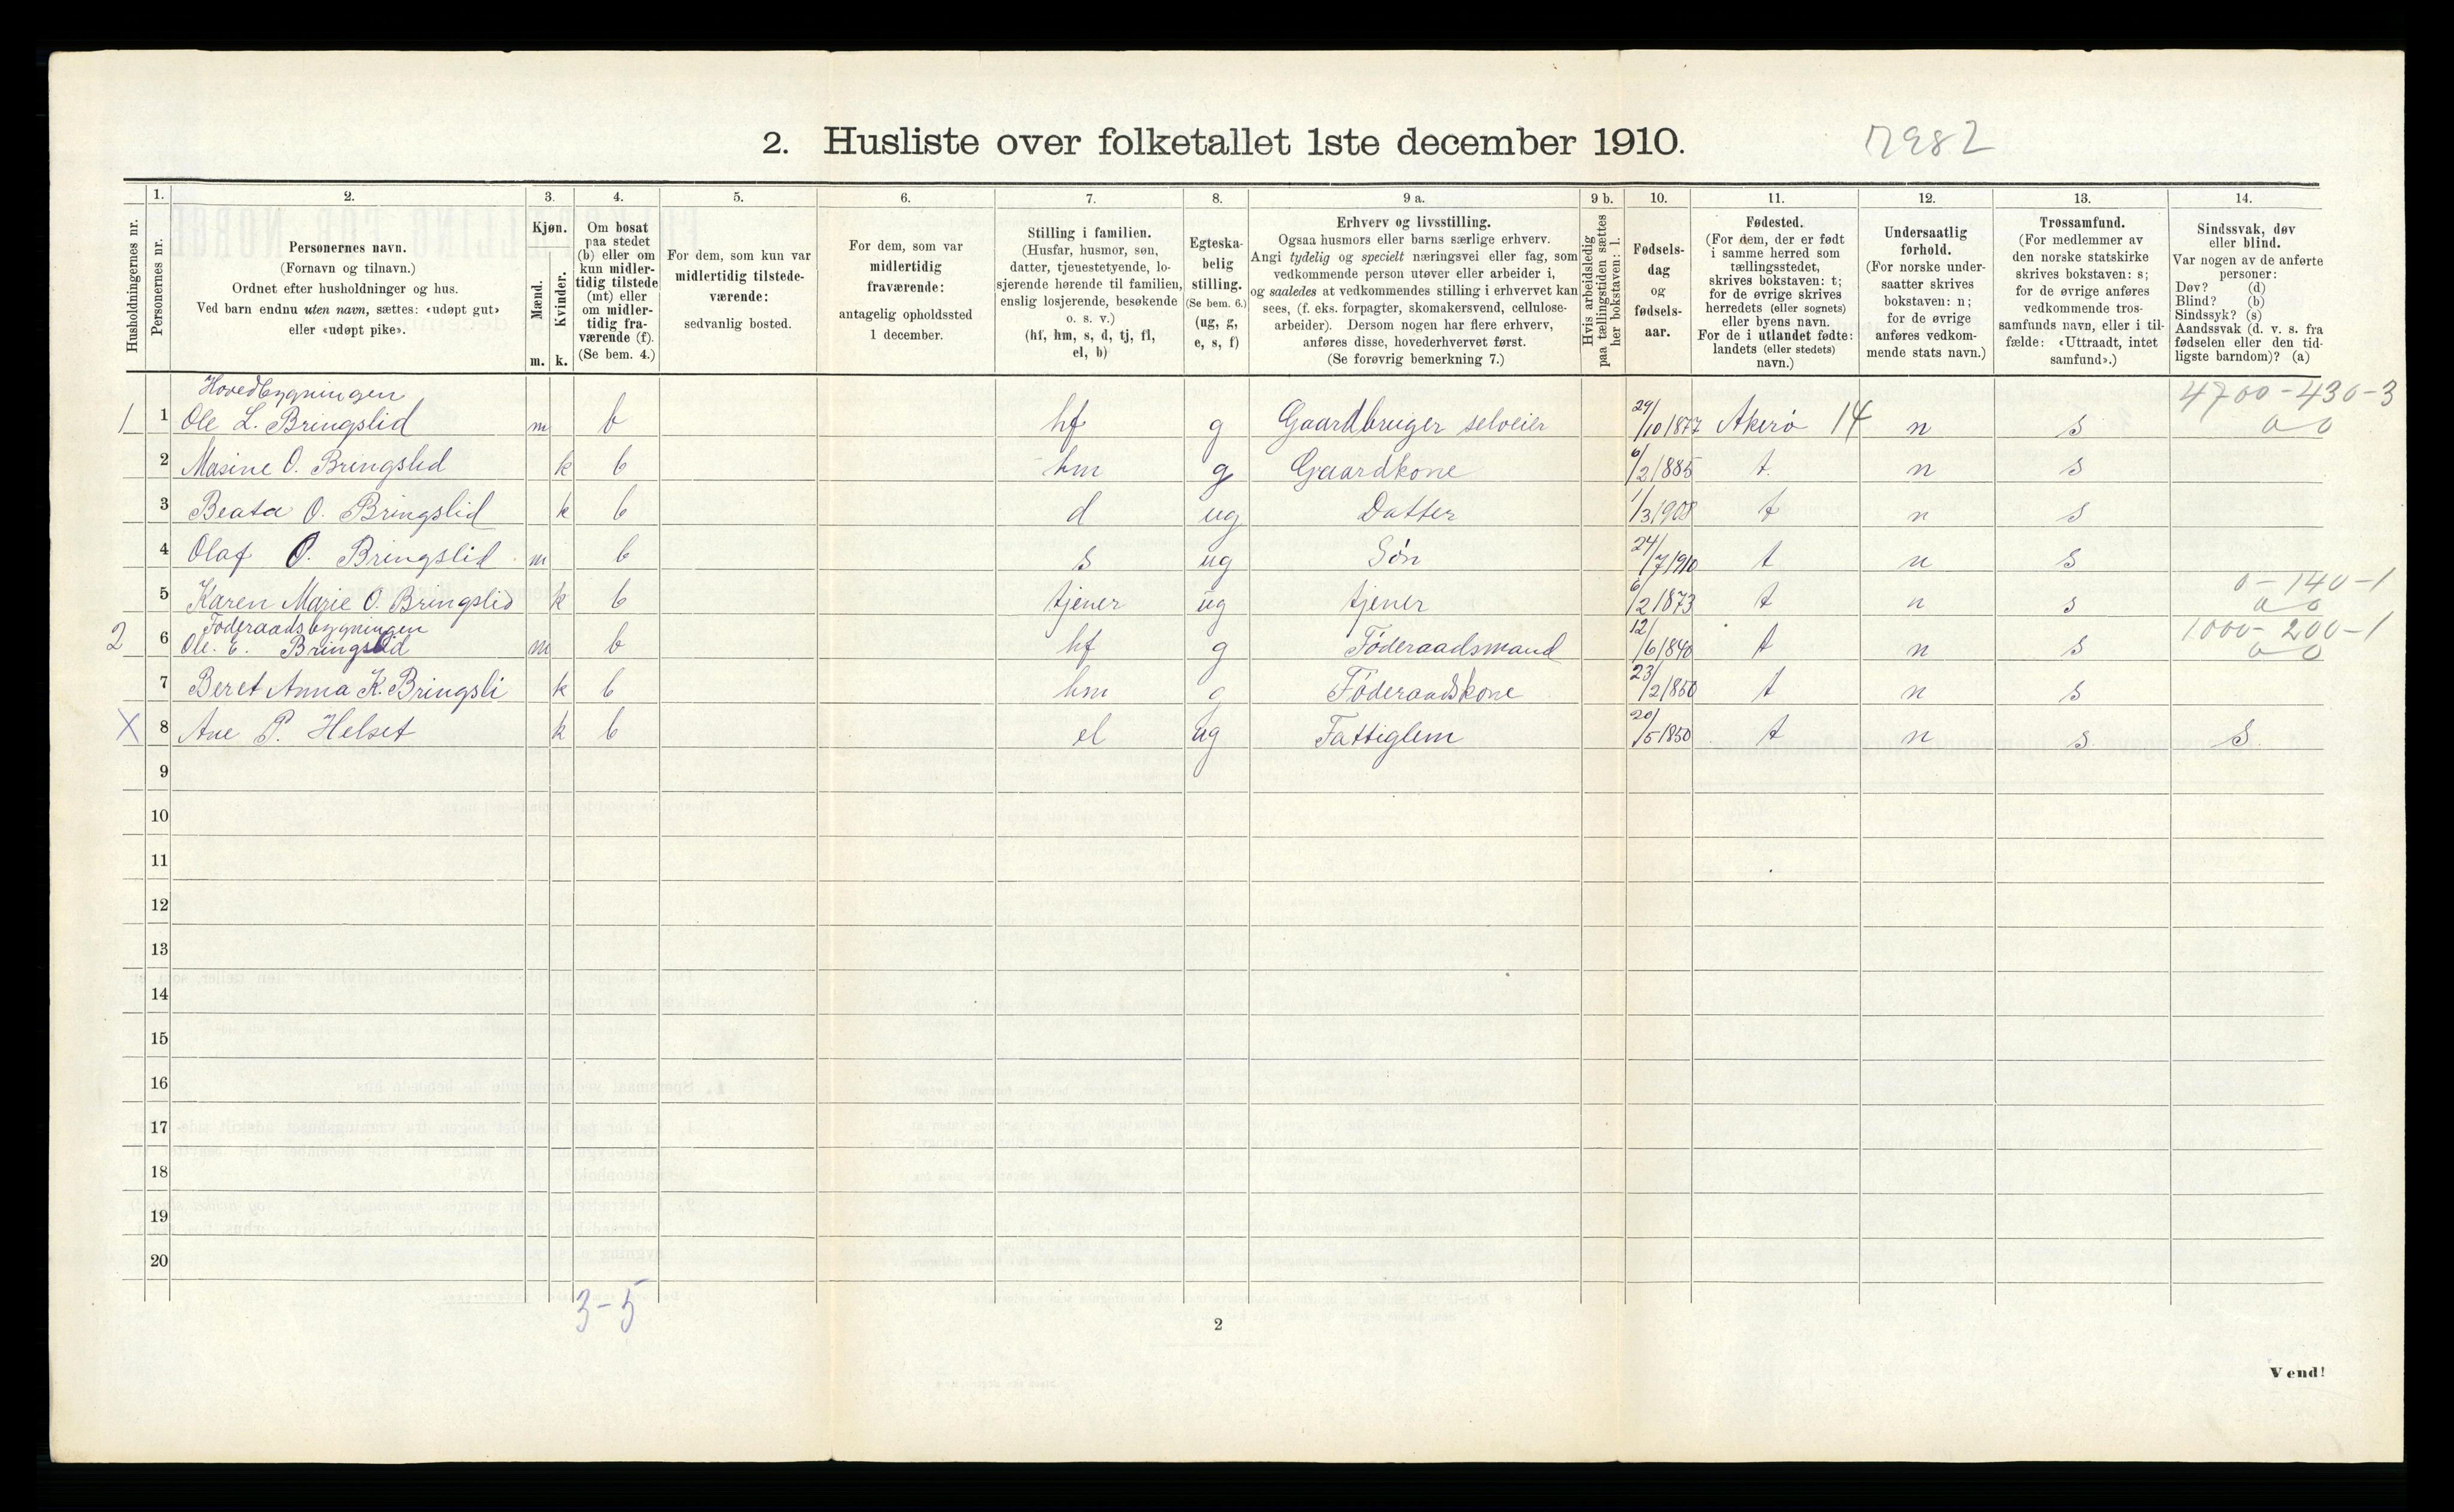 2. Husliste over folketallet 1ste december 1910.
7982
Husholdningernes nr.
1. Personernes nr.
2. Personernes navn.
(Fornavn og tilnavn.)
Ordnet efter husholdninger og hus.
Ved barn endnu uten navn, sættes: «udøpt gut»
eller «udøpt pike».
3. Kjøn.
Mænd. m.
Kvinder. k.
4. Om bosat
paa stedet
(b) eller om
kun midler-
tidig tilstede
(mt) eller
om midler-
tidig fra-
værende (f).
(Se bem. 4.)
5. For dem, som kun var
midlertidig tilstede-
værende:
sedvanlig bosted.
6. For dem, som var
midlertidig
fraværende:
antagelig opholdssted
1 december.
7. Stilling i familien.
(Husfar, husmor, søn,
datter, tjenestetyende, lo-
sjerende hørende til familien,
enslig losjerende, besøkende
o. s. v.)
(hf, hm, s, d, tj, fl,
el, b)
8. Egteska-
belig
stilling.
(Se bem. 6.)
(ug, g,
e, s, f)
9 a. Erhverv og livsstilling.
Ogsaa husmors eller barns særlige erhverv.
Angi tydelig og specielt næringsvei eller fag, som
vedkommende person utøver eller arbeider i,
og saaledes at vedkommendes stilling i erhvervet kan
sees, (f. eks. forpagter, skomakersvend, cellulose-
arbeider). Dersom nogen har flere erhverv,
anføres disse, hovederhvervet først.
(Se forøvrig bemerkning 7.)
9 b. Hvis arbeidsledig
paa tællingstiden sættes
her bokstaven: l.
10. Fødsels-
dag
og
fødsels-
aar.
11. Fødested.
(For dem, der er født
i samme herred som
tællingsstedet,
skrives bokstaven: t;
for de øvrige skrives
herredets (eller sognets)
eller byens navn.
For de i utlandet fødte:
landets (eller stedets)
navn.)
12. Undersaatlig
forhold.
(For norske under-
saatter skrives
bokstaven: n;
for de øvrige
anføres vedkom-
mende stats navn.)
13. Trossamfund.
(For medlemmer av
den norske statskirke
skrives bokstaven: s;
for de øvrige anføres
vedkommende tros-
samfunds navn, eller i til-
fælde: «Uttraadt, intet
samfund».)
14. Sindssvak, døv
eller blind.
Var nogen av de anførte
personer:
Døv? (d)
Blind? (b)
Sindssyk? (s)
Aandssvak (d. v. s. fra
fødselen eller den tid-
ligste barndom)? (a)
Hovedbygningen 4700-430-3
1 1 Ole L. Bringslid m b hf g Gaardbruger selveier 29/10 1877 Akerø 14 n s 0 0
2 Masine O. Bringslid k b hm g Gaardkone 6/2 1885 t n s
3 Beata O. Bringslid k b d ug Datter 1/3 1908 t n s
4 Olaf O. Bringslid m b s ug Søn 24/7 1910 t n s
0-140-1
5 Karen Marie O. Bringslid k b tjener ug tjener 6/2 1873 t n s 0 0
Føderaadsbygningen 1000-200-1
2 6 Ole. E. Bringslid m b hf g Føderaadsmand 12/6 1840 t n s 0 0
7 Beret Anna K. Bringsli k b hm g Føderaadskone 23/2 1850 t n s
X 8 Ane P. Helset k b el ug Fattiglem 20/5 1850 t n s S.
9
10
11
12
13
14
15
16
17
18
19
20
3-5
2
Vend!